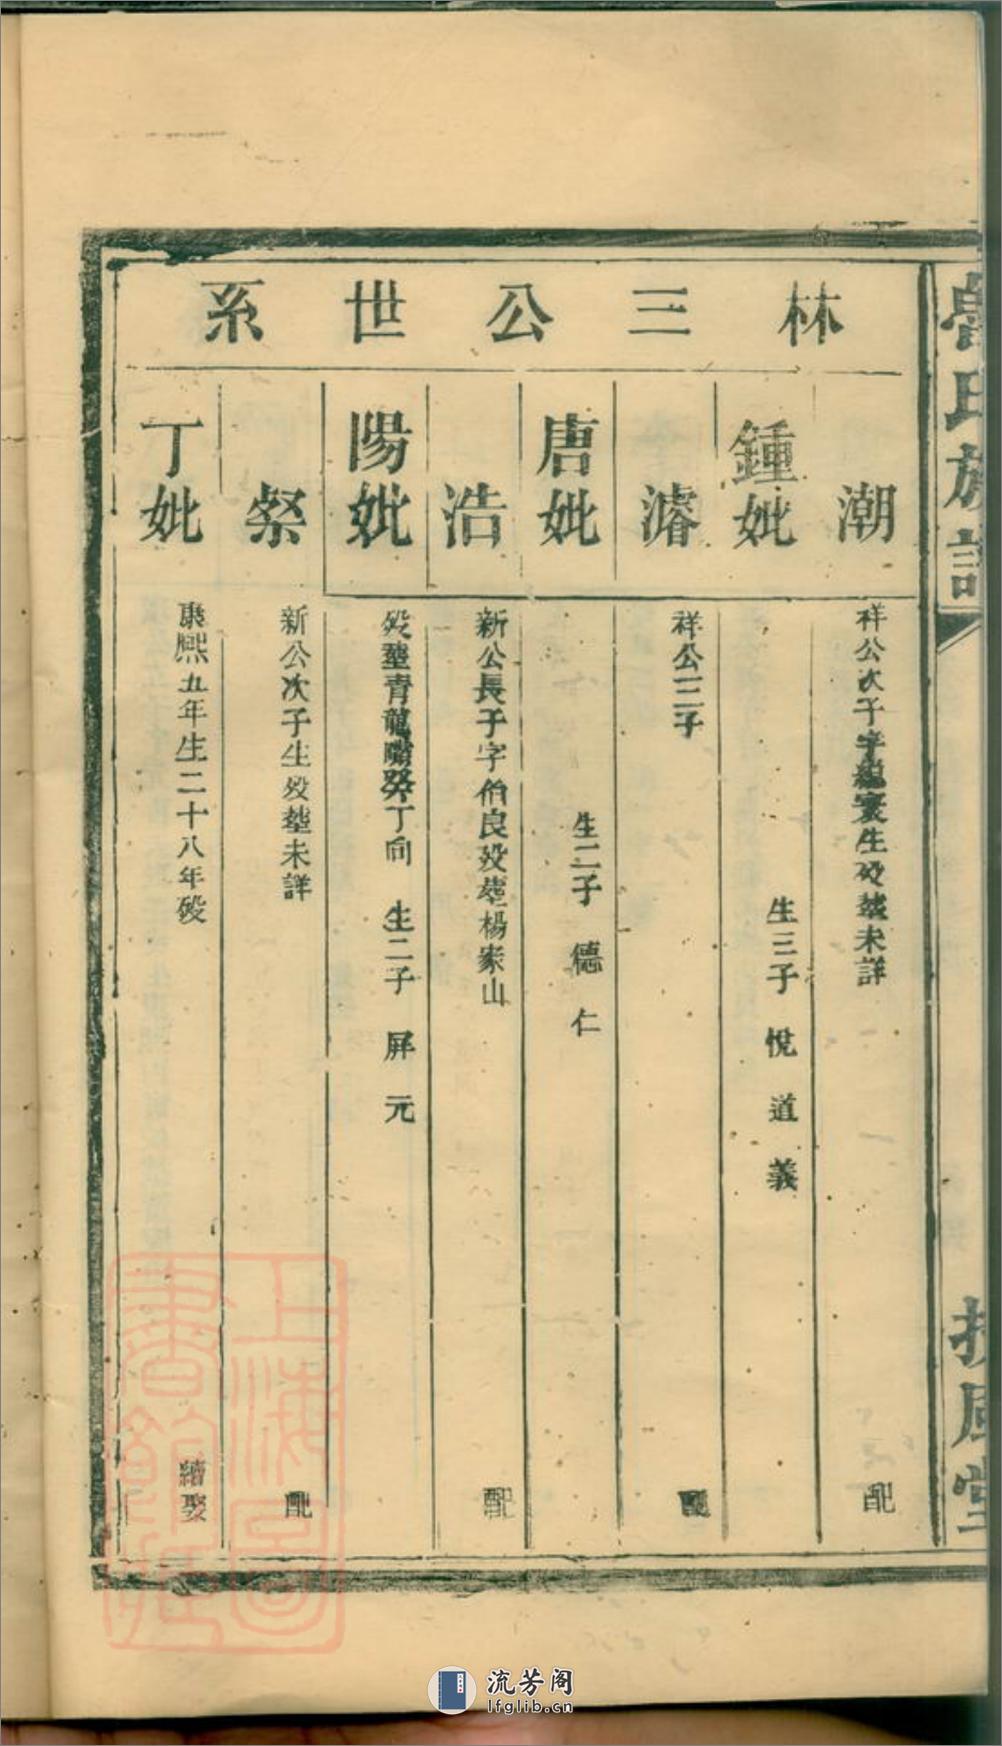 魯氏族譜
扶風堂
林三公世系
潮
祥公次子字龍寰生歿塟未詳 配
鍾妣
生三子 悅 道 義
濬
祥公三子 配
唐妣
生二子 德 仁
浩
新公長子字伯良歿塟楊家山 配
陽妣
歿塟青龍嘴癸丁向 生二子 屏 元
祭
新公次子生歿塟未詳 配
丁妣
康熙五年生二十八年歿 續娶
上海圖書館藏
流芳阁
lfglib.cn